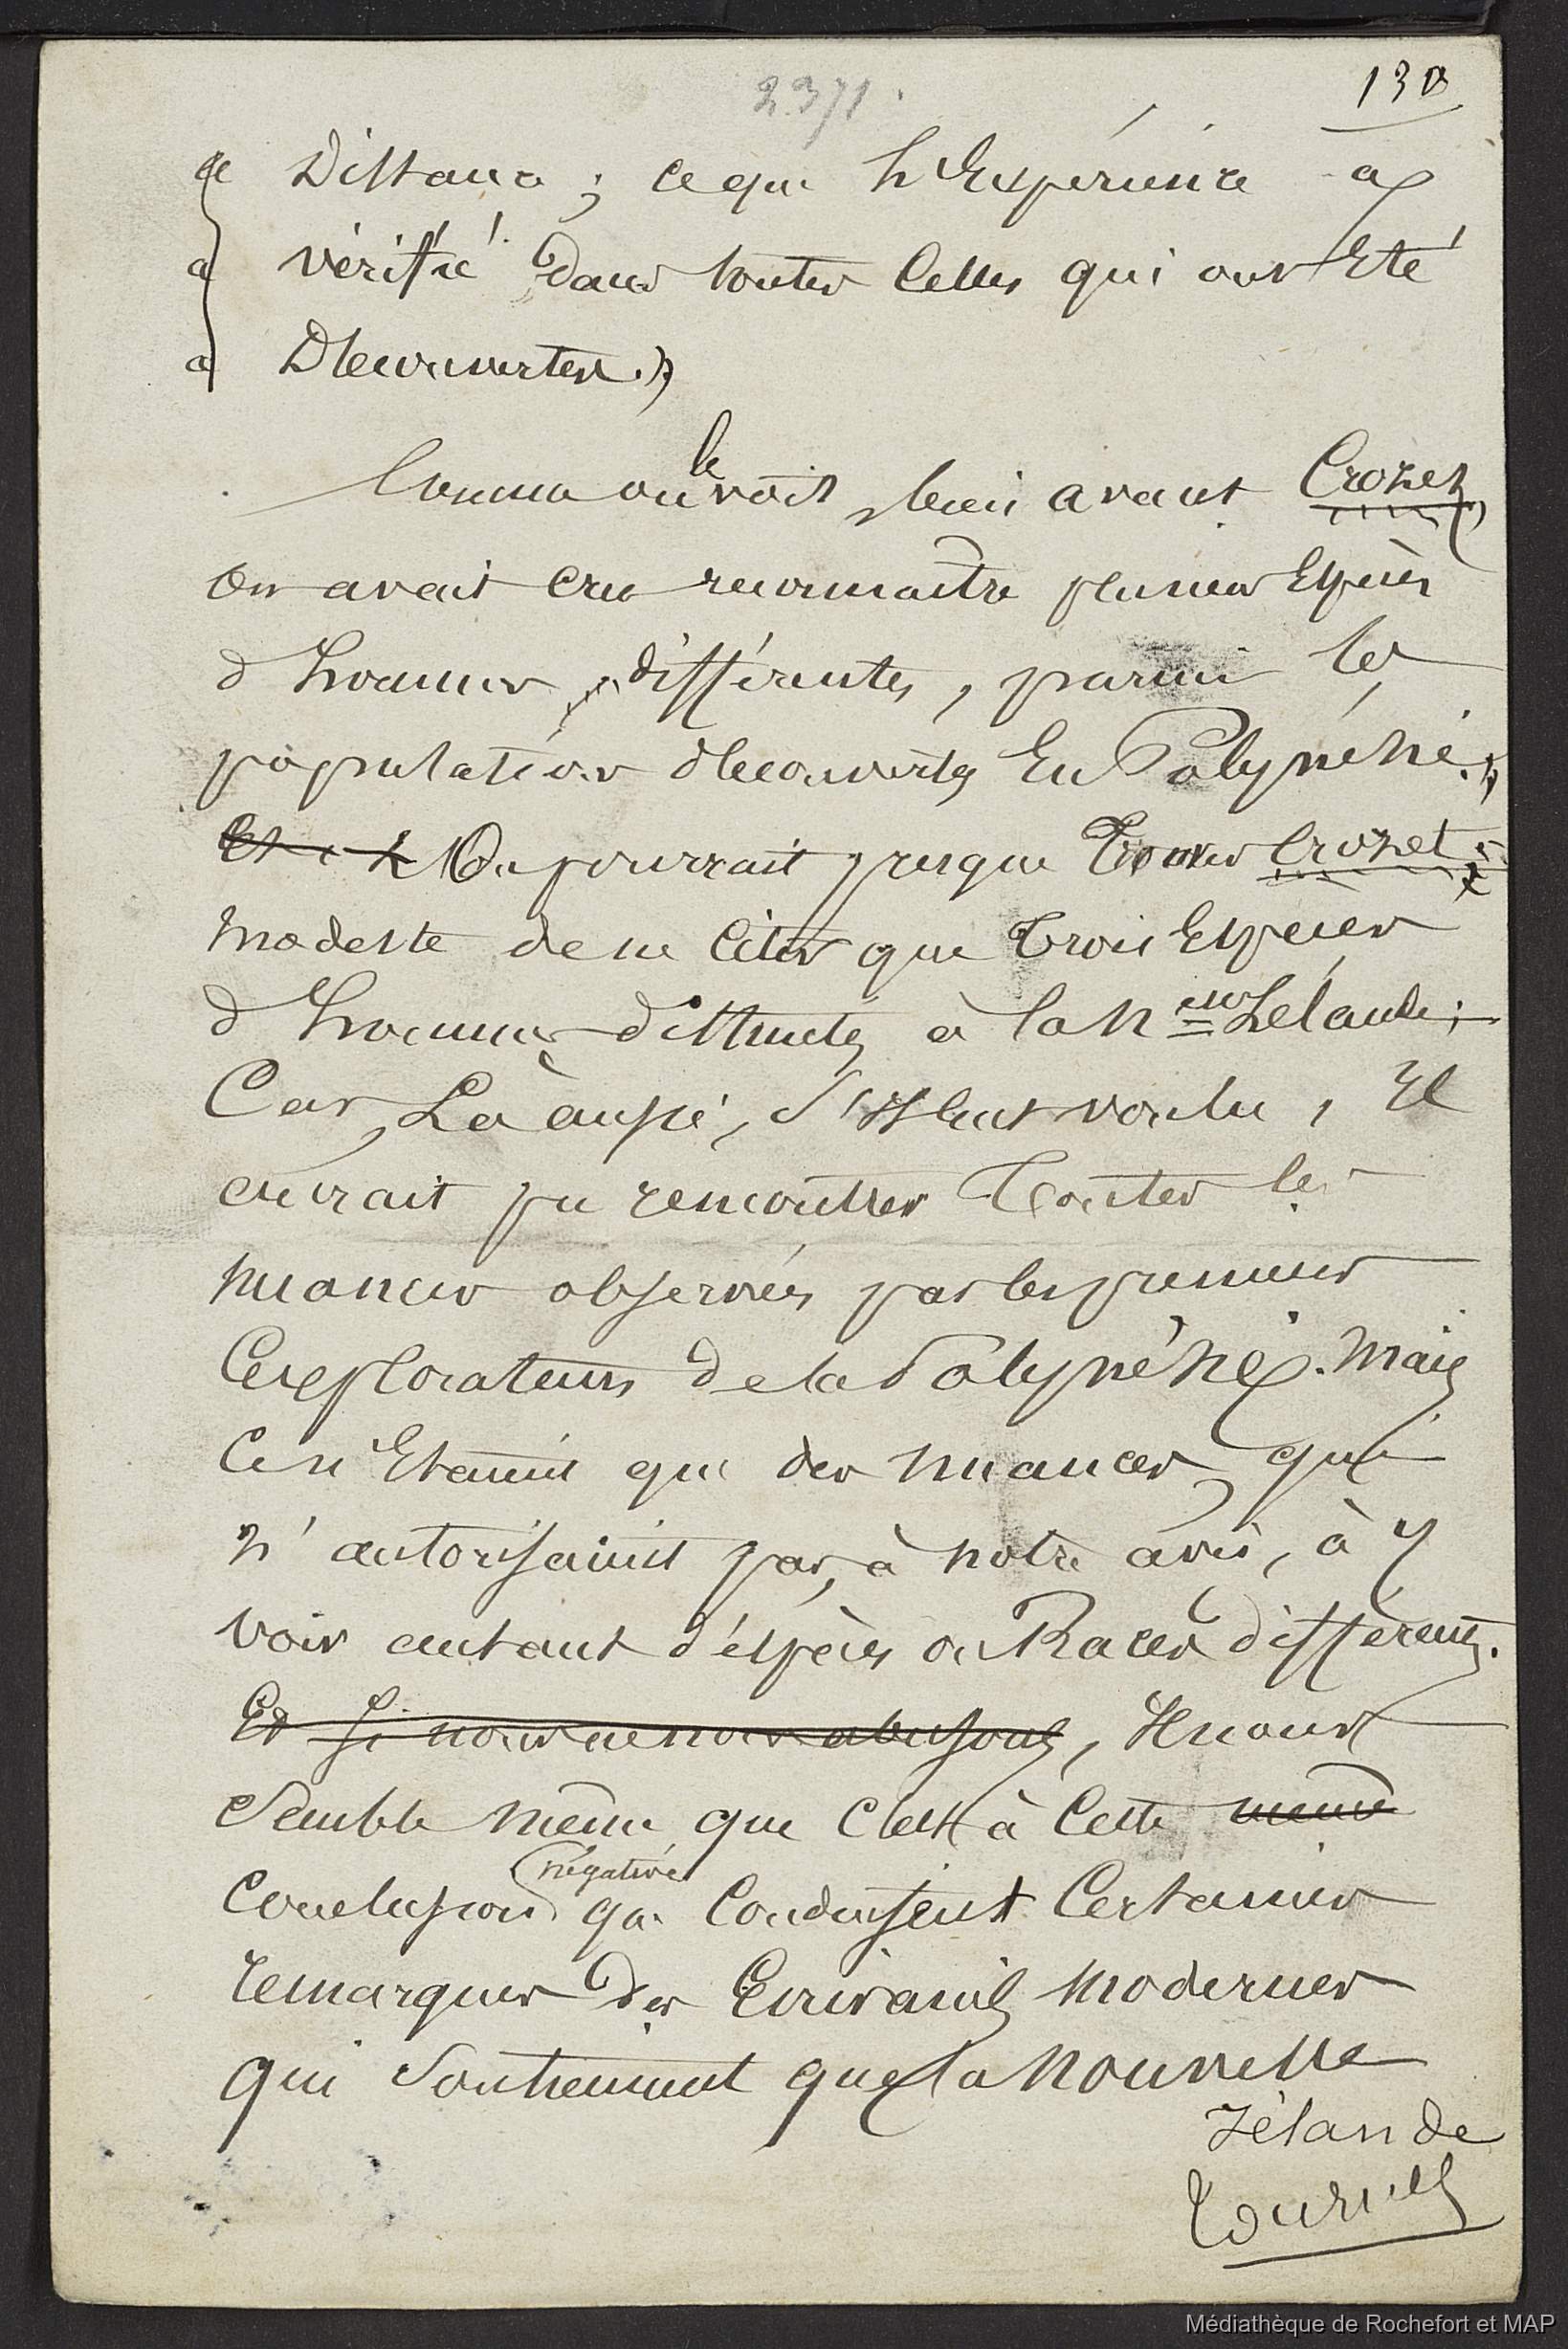 2371.
130
« Distance ; ce que l'Expérience a
« vérifié dans toutes Celles qui ont Eté
« Découvertes. »
Comme on le voit, bien avant Crozet,
On avait cru reconnaître plusieurs Espèces
d'hommes différentes, parmi les
populations découvertes En Polynésie.
On pourrait presque Trouver Crozet
modeste de ne Citer que Trois Espèces
d'hommes distinctes à la Nlle Zélande ;
Car, Là aussi, S'Il l'eut voulu, Il
aurait pu rencontrer Toutes les
nuances observées par les premiers
Explorateurs de la Polynésie. Mais
Ce n'Etaient que des nuances, qui
n'autorisaient pas, à notre avis, à y
voir autant d'espèces ou Races différentes.
Et si nous ne nous abusons, Il nous
Semble même que c'est à Cette même
Conclusion négative que Conduisent Certaines
remarques des Ecrivains modernes
qui Soutiennent que la Nouvelle
Zélande
Tournez
Médiathèque de Rochefort et MAP